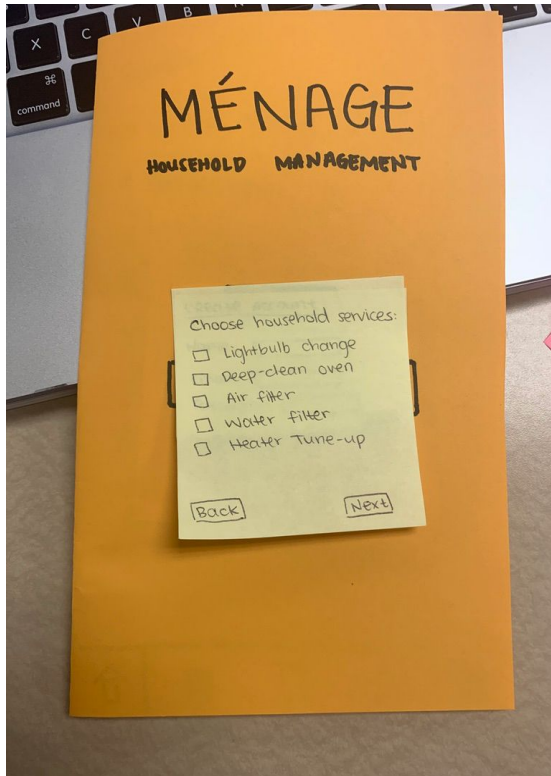 X
C
V
B
⌘
command
MÉNAGE
HOUSEHOLD MANAGEMENT
Choose household services:
Lightbulb change
Deep-clean oven
Air filter
Water filter
Heater Tune-up
Back
Next